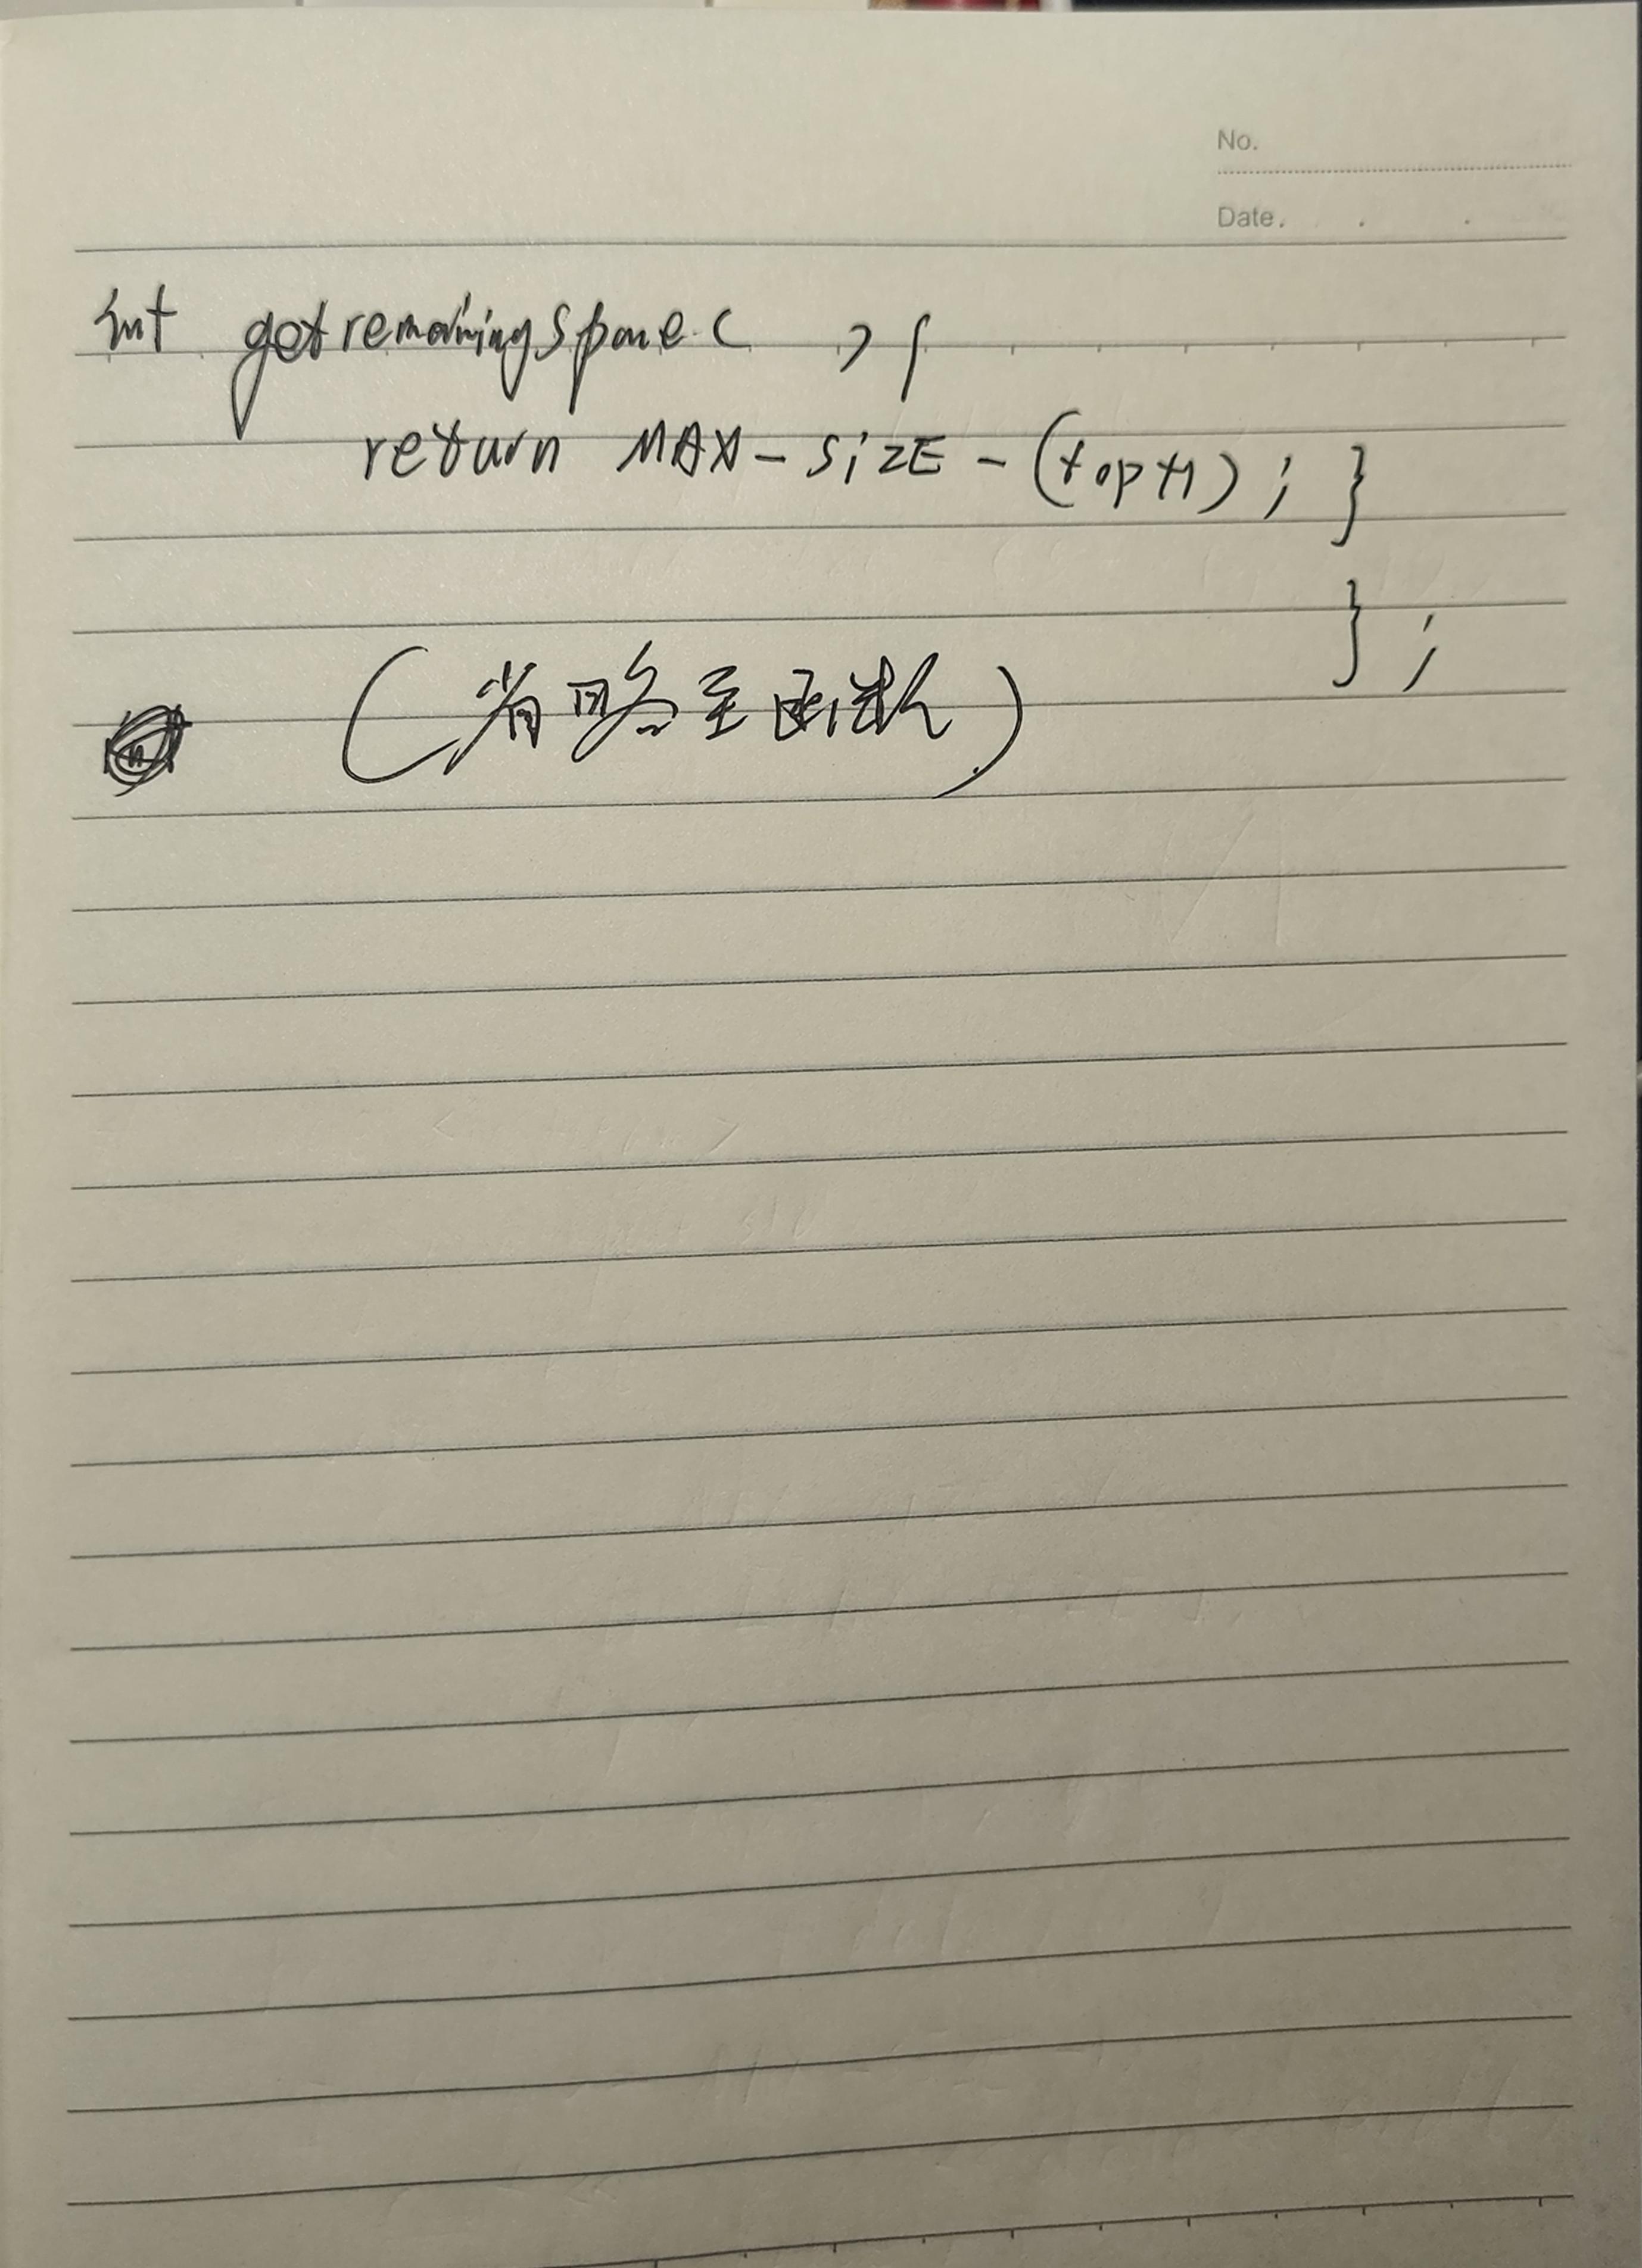 No.
Date.
int getremainingspace( ) {
return MAX-SIZE-(top+1); }
};
(省略主函数)